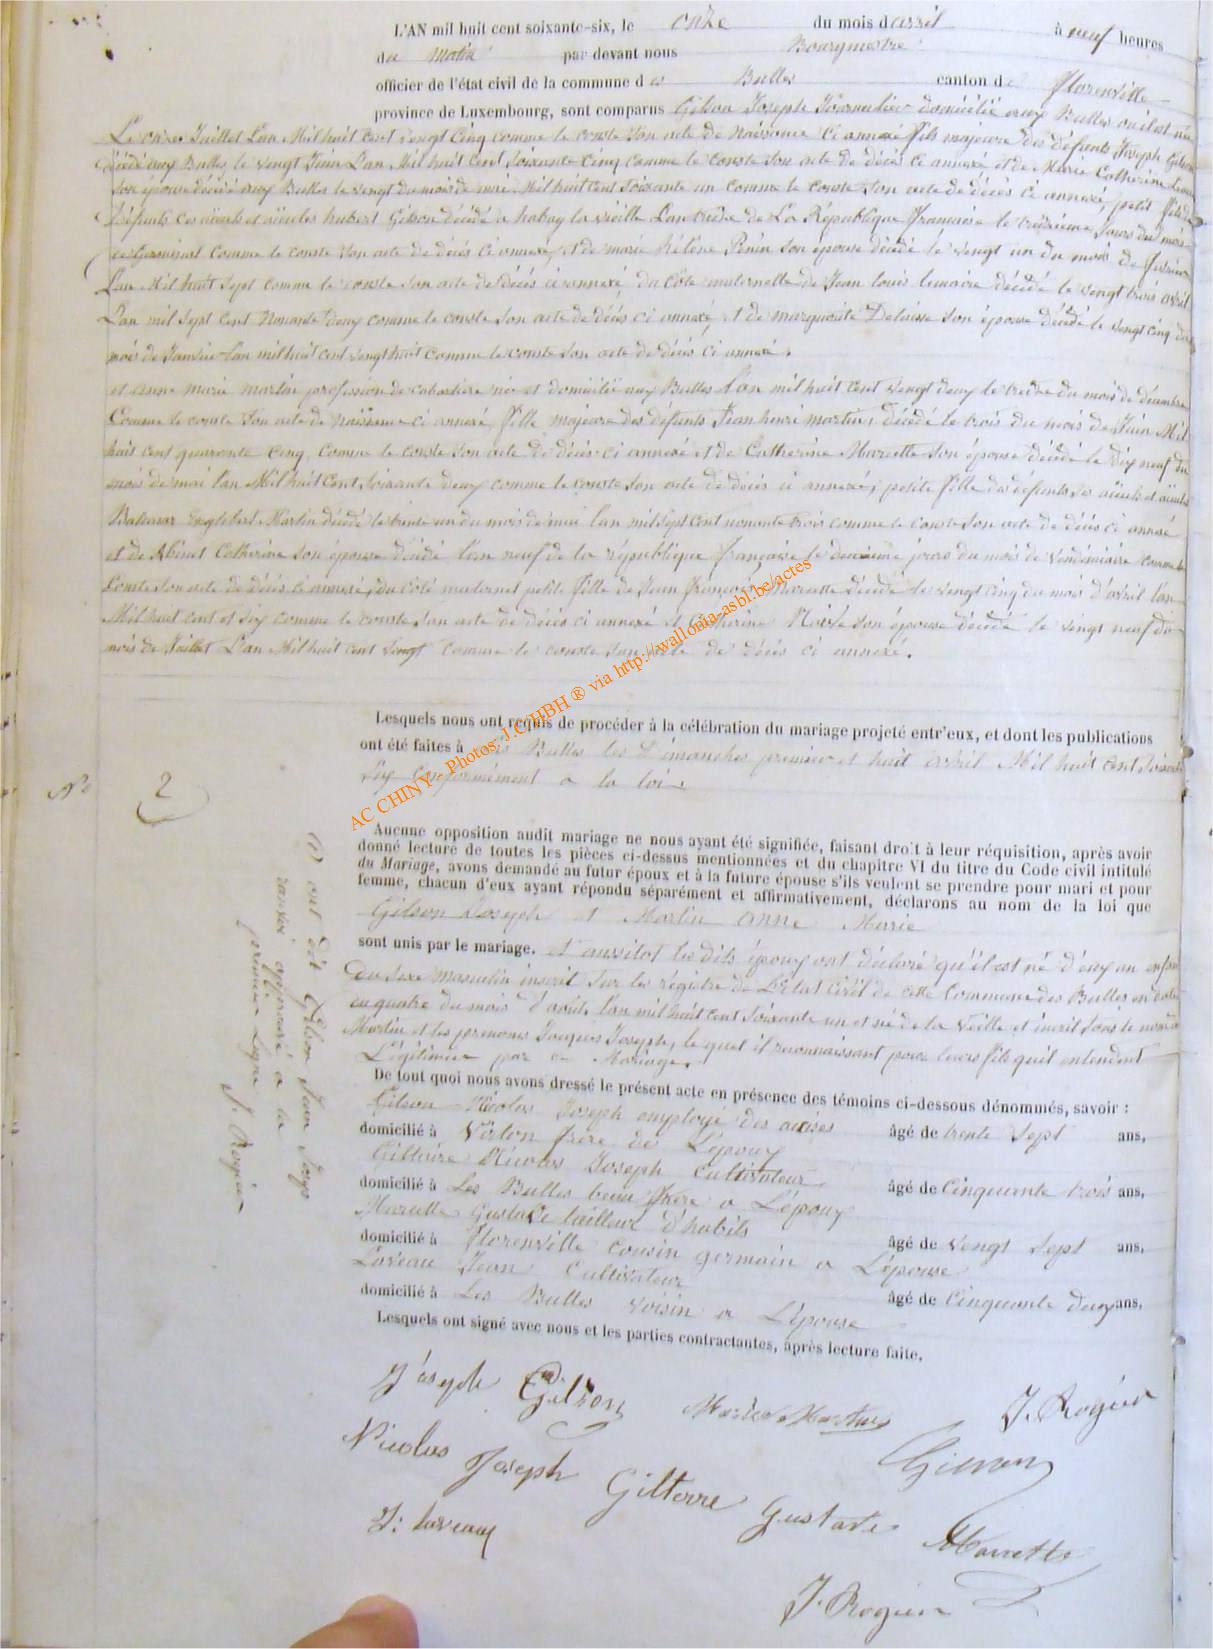 L'AN mil huit cent soixante-six, le onze du mois d'avril à neuf heures
du matin par devant nous Bourgmestre
officier de l'état civil de la commune des Bulles canton de Florenville
province de Luxembourg, sont comparus Gilson Joseph domicilié aux Bulles où il est né
Le onze Juillet L'an Mil huit cent vingt Cinq comme le conste son acte de Naissance ci annexé fils majeure des défunts Joseph Gilson
décédé aux Bulles, le vingt Juin L'an Mil huit Cent Soixante Cinq comme le conste son acte de décès ci annexé et de Marie Catherine
son épouse décédé aux Bulles le vingt du mois de mai Mil huit Cent Soixante un comme le conste son acte de décès ci annexé, petit fils de
défunts ces aïeuls et aïeules hubert Gilson décédé a habay la vieille L'an treize de La République française le treizième jours du mois
de Germinal comme le conste son acte de décès ci annexé et de marie hélène Pénin son épouse décédé le vingt un du mois de
L'an Mil huit Sept comme le conste son acte de décès ci annexé du côté maternelle de Jean louis lemaire décédé le vingt trois avril
L'an mil Sept Cent Nonante deux comme le conste son acte de décès ci annexé, et de marguerite son épouse décédé le vingt cinq du
mois de Janvier l'an mil huit cent vingt huit comme le conste son acte de décès ci annexé.
et anne marie martin profession de née et domicilié aux Bulles l'an mil huit Cent vingt deux le treize du mois de décembre
Comme le conste son acte de Naissance ci annexé, fille majeure des défunts Jean henri martin, décédé le trois du mois de Juin Mil
huit cent quarante Cinq, comme le conste son acte de décès ci annexé et de Catherine Marcette son épouse décédé le dix neuf du
mois de mai l'an Mil huit Cent Soixante deux comme le conste son acte de décès ci annexé, petite fille des défunts ses aïeuls et aïeules
Englebert Martin décédé le trente un du mois de mai l'an mil Sept Cent nonante trois comme le conste son acte de décès ci annexé
et de Catherine son épouse décédé l'an neuf de la république française le jours du mois de Vendémiaire comme le
conste son acte de décès ci annexé, du Côté maternel petite fille de Jean françois Marcette décédé le vingt cinq du mois d'avril l'an
Mil huit cent et six comme le conste son acte de décès ci annexé et Catherine son épouse décédé le vingt neuf du
mois de Juillet L'an Mil huit cent vingt comme le conste son acte de décès ci annexé.
Lesquels nous ont requis de procéder à la célébration du mariage projeté entr'eux, et dont les publications
ont été faites à Bulles les Dimanches premier et huit avril Mil huit cent Soixante
Six Conformément a la loi.
N° 2
Aucune opposition audit mariage ne nous ayant été signifiée, faisant droit à leur réquisition, après avoir
donné lecture de toutes les pièces ci-dessus mentionnées et du chapitre VI du titre du Code civil intitulé
du Mariage, avons demandé au futur époux et à la future épouse s'ils veulent se prendre pour mari et pour
femme, chacun d'eux ayant répondu séparément et affirmativement, déclarons au nom de la loi que
Gilson Joseph et Martin anne Marie
sont unis par le mariage. et aussitot les dits époux ont déclaré qu'il est né d'eux un enfant
du sexe masculin inscrit sur les régistre de L'état Civil de cette Commune des Bulles en date
du quatre du mois d'août, l'an mil huit Cent Soixante un et né de la Veille et inscrit sous le nom de
Martin et les prenoms Joseph, le quel il reconnaissant pour leurs fils qu'il entendent
Légitimer par ce Mariage.
De tout quoi nous avons dressé le présent acte en présence des témoins ci-dessous dénommés, savoir :
Gilson Nicolas Joseph employé des acises
domicilié à Virton frère de L'époux âgé de trente Sept ans,
Nicolas Joseph Cultivateur
domicilié à Les Bulles beau frère a L'époux âgé de Cinquante trois ans,
Marcette Gustave tailleur d'habits
domicilié à Florenville cousin germain a L'épouse âgé de vingt Sept ans,
Laveaux Jean Cultivateur
domicilié à Les Bulles voisin a L'épouse âgé de Cinquante deux ans,
Lesquels ont signé avec nous et les parties contractantes, après lecture faite.
(1) ont dit Gilson Jean Josep
renvoi approuvé a la
première Ligne J. Rogier
Joseph Gilson
J. Rogier
Nicolas Joseph Gilterre
Gustave Marcette
J: Laveaux
J. Rogier
AC CHINY - Photos, J.C. HBH ® via http://wallonia-asbl.be/actes